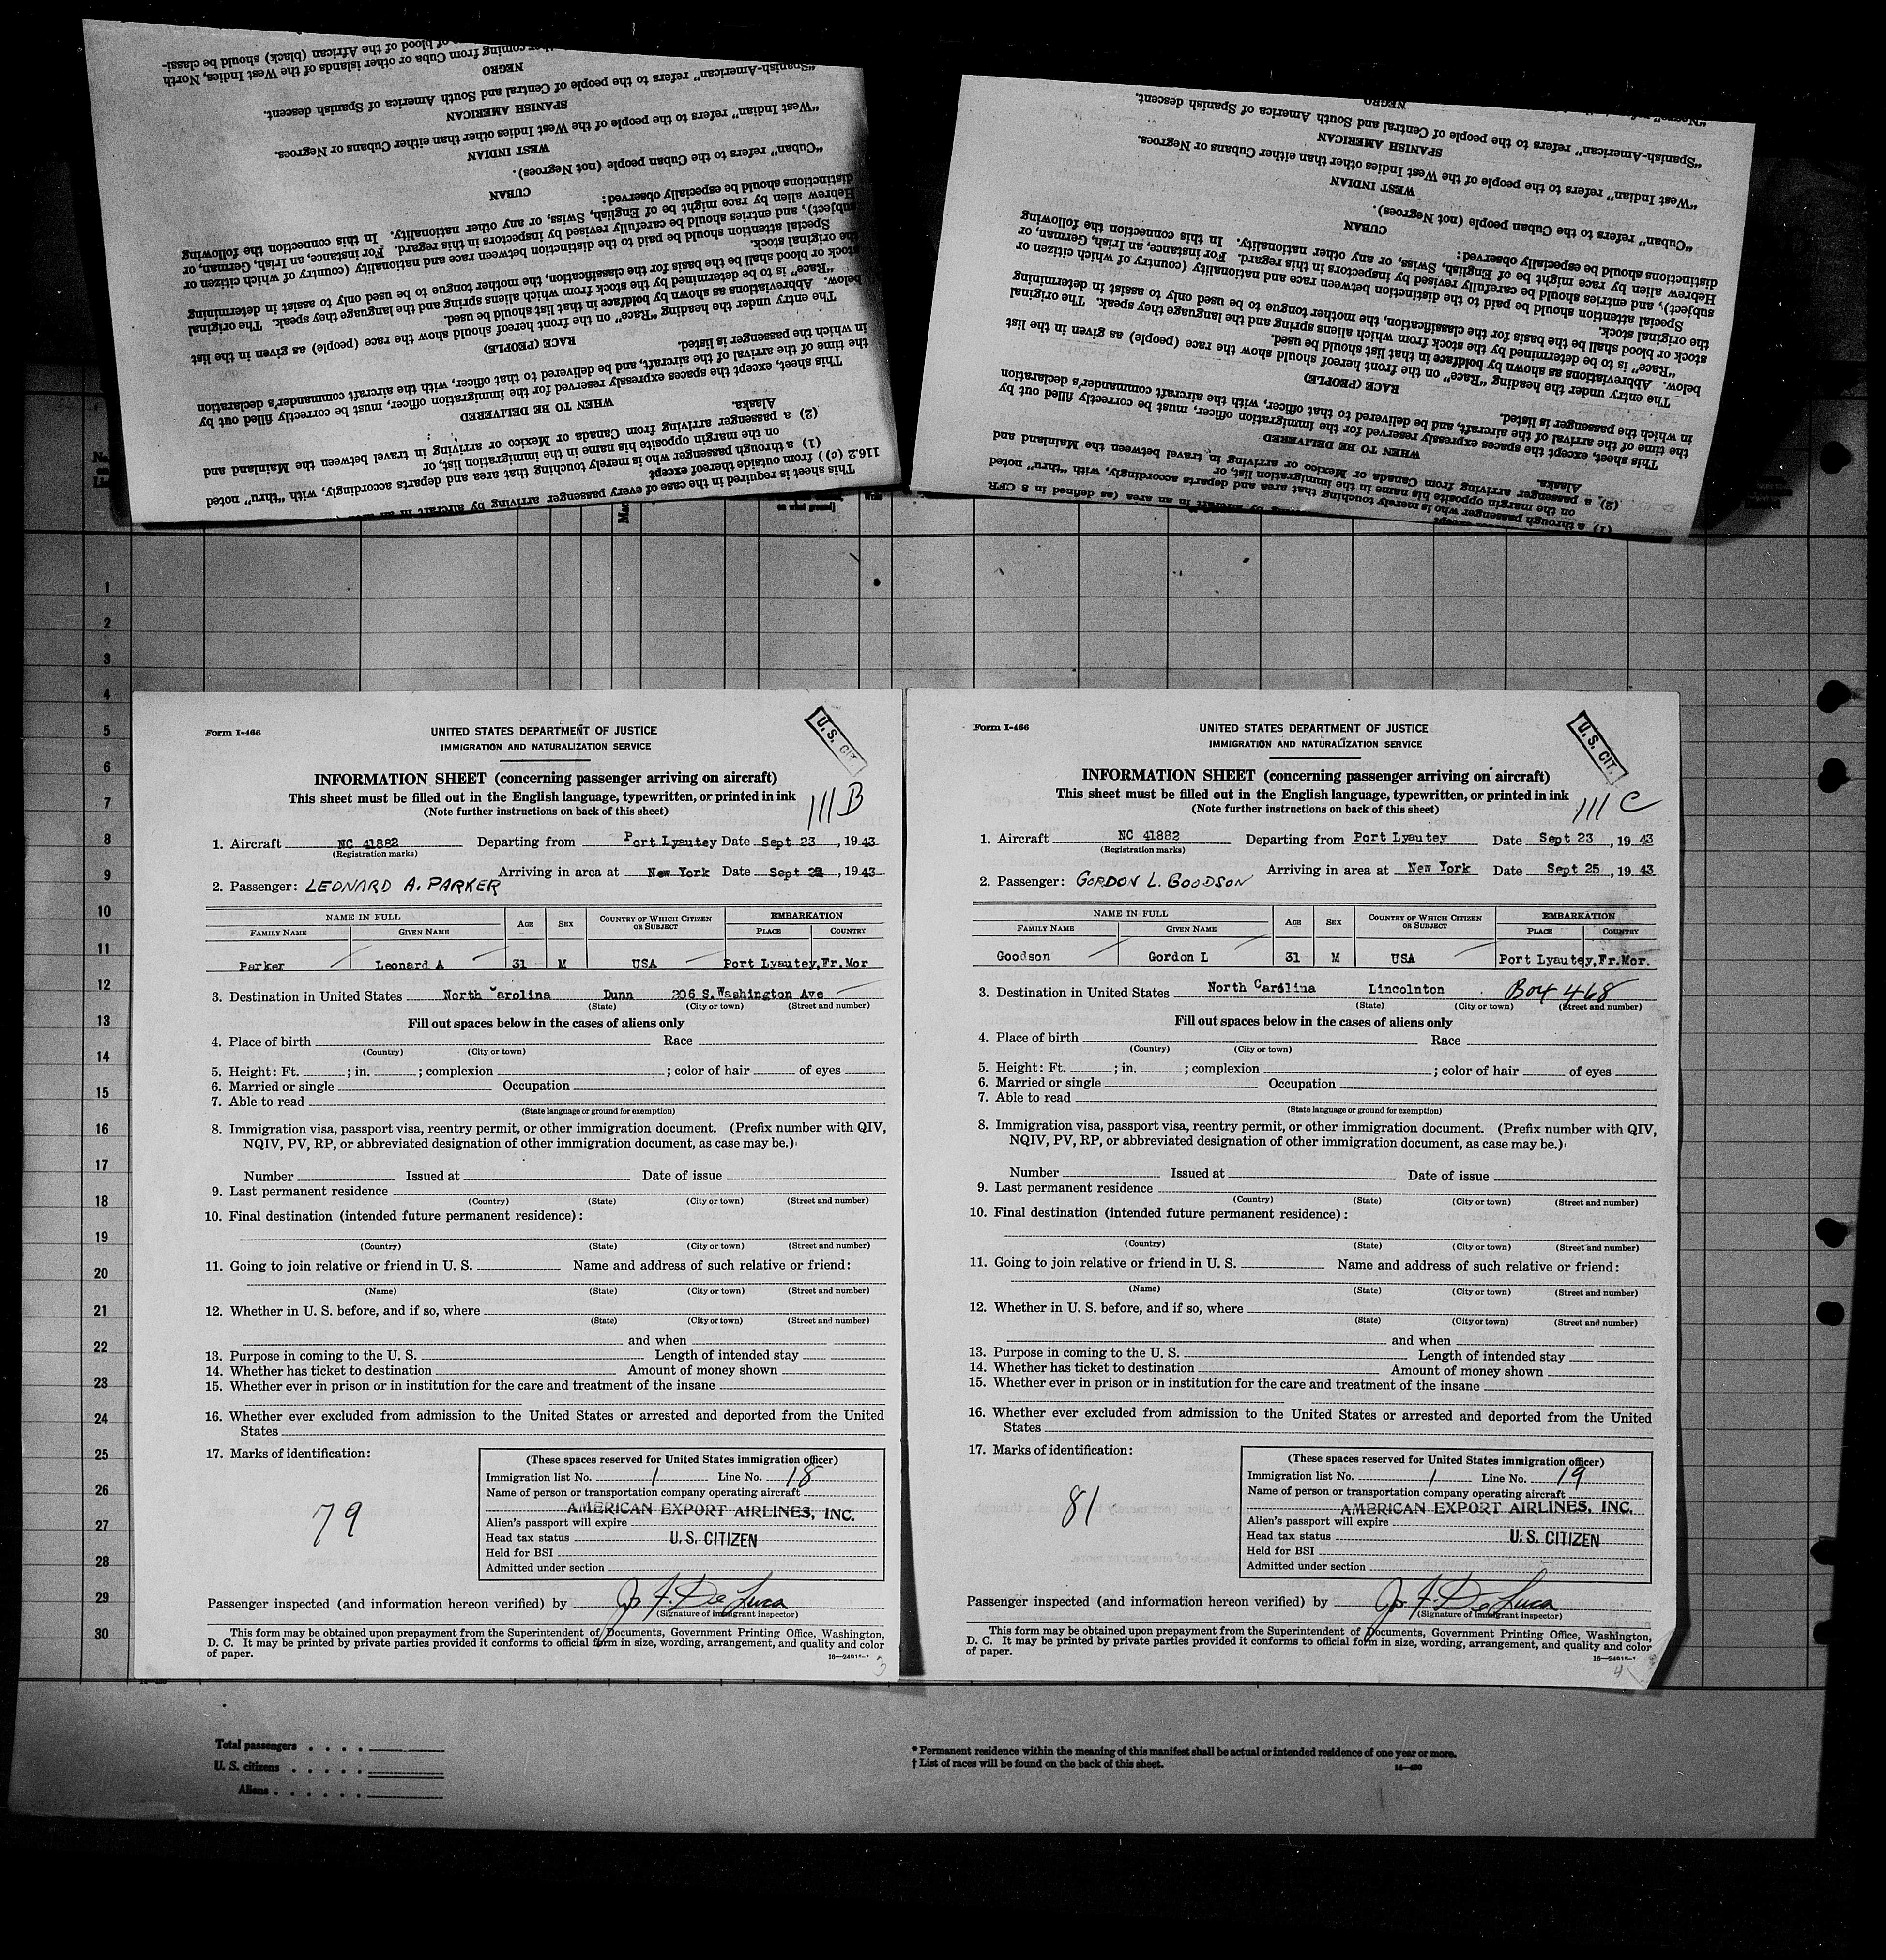 of blood of the African (black) should be classi-
coming from Cuba or other islands of the West Indies, North
NEGRO
"Spanish-American" refers to the people of Central and South America of Spanish descent.
SPANISH AMERICAN
"West Indian" refers to the people of the West Indies other than either Cubans or Negroes.
WEST INDIAN
"Cuban" refers to the Cuban people (not Negroes).
CUBAN
distinctions should be especially observed:
Hebrew alien by race might be of English, Swiss, or any other nationality. In this connection the following
subject), and entries should be carefully revised by inspectors in this regard. For instance, an Irish, German, or
Special attention should be paid to the distinction between race and nationality (country of which citizen or
the original stock.
stock or blood shall be the basis for the classification, the mother tongue to be used only to assist in determining
"Race" is to be determined by the stock from which aliens spring and the language they speak. The original
below. Abbreviations as shown by boldface in that list should be used.
The entry under the heading "Race" on the front hereof should show the race (people) as given in the list
RACE (PEOPLE)
in which the passenger is listed.
the time of the arrival of the aircraft, and be delivered to that officer, with the aircraft commander's declaration
This sheet, except the spaces expressly reserved for the immigration officer, must be correctly filled out by
WHEN TO BE DELIVERED
Alaska.
(2) a passenger arriving from Canada or Mexico or arriving in travel between the Mainland and
on the margin opposite his name in the immigration list, or
(1) a through passenger who is merely touching that area and departs accordingly, with "thru" noted
116.2 (c)) from outside thereof except
This sheet is required in the case of every passenger arriving by aircraft in an
NEGRO
"Spanish-American" refers to the people of Central and South America of Spanish descent.
SPANISH AMERICAN
"West Indian" refers to the people of the West Indies other than either Cubans or Negroes.
WEST INDIAN
"Cuban" refers to the Cuban people (not Negroes).
CUBAN
distinctions should be especially observed:
Hebrew alien by race might be of English, Swiss, or any other nationality. In this connection the following
subject), and entries should be carefully revised by inspectors in this regard. For instance, an Irish, German, or
Special attention should be paid to the distinction between race and nationality (country of which citizen or
the original stock.
stock or blood shall be the basis for the classification, the mother tongue to be used only to assist in determining
"Race" is to be determined by the stock from which aliens spring and the language they speak. The original
below. Abbreviations as shown by boldface in that list should be used.
The entry under the heading "Race" on the front hereof should show the race (people) as given in the list
RACE (PEOPLE)
in which the passenger is listed.
the time of the arrival of the aircraft, and be delivered to that officer, with the aircraft commander's declaration
This sheet, except the spaces expressly reserved for the immigration officer, must be correctly filled out by
WHEN TO BE DELIVERED
Alaska.
(2) a passenger arriving from Canada or Mexico or arriving in travel between the Mainland and
on the margin opposite his name in the immigration list, or
(1) a through passenger who is merely touching that area and departs accordingly, with "thru" noted
by aircraft in an area (as defined in 8 CFR
on what ground]
1
2
3
4
5
6
7
8
9
10
11
12
13
14
15
16
17
18
19
20
21
22
23
24
25
26
27
28
29
30
Form I-466
UNITED STATES DEPARTMENT OF JUSTICE
IMMIGRATION AND NATURALIZATION SERVICE
U. S. CIT.
INFORMATION SHEET (concerning passenger arriving on aircraft)
This sheet must be filled out in the English language, typewritten, or printed in ink
(Note further instructions on back of this sheet)
111 B
1. Aircraft NC 41882 Departing from Port Lyautey Date Sept 23, 1943
(Registration marks)
Arriving in area at New York Date Sept , 1943
2. Passenger: LEONARD A. PARKER
NAME IN FULL AGE SEX COUNTRY OF WHICH CITIZEN OR SUBJECT EMBARKATION
FAMILY NAME GIVEN NAME PLACE COUNTRY
Parker Leonard A 31 M USA Port Lyautey, Fr. Mor
3. Destination in United States North Carolina Dunn 206 S. Washington Ave
(State) (City or town) (Street and number)
Fill out spaces below in the cases of aliens only
4. Place of birth Race
(Country) (City or town)
5. Height: Ft. ; in. ; complexion ; color of hair of eyes
6. Married or single Occupation
7. Able to read
(State language or ground for exemption)
8. Immigration visa, passport visa, reentry permit, or other immigration document. (Prefix number with QIV,
NQIV, PV, RP, or abbreviated designation of other immigration document, as case may be.)
Number Issued at Date of issue
9. Last permanent residence
(Country) (State) (City or town) (Street and number)
10. Final destination (intended future permanent residence):
(Country) (State) (City or town) (Street and number)
11. Going to join relative or friend in U. S. Name and address of such relative or friend:
(Name) (State) (City or town) (Street and number)
12. Whether in U. S. before, and if so, where
(State) (City or town) (Street and number)
and when
13. Purpose in coming to the U. S. Length of intended stay
14. Whether has ticket to destination Amount of money shown
15. Whether ever in prison or in institution for the care and treatment of the insane
16. Whether ever excluded from admission to the United States or arrested and deported from the United
States
17. Marks of identification:
79
(These spaces reserved for United States immigration officer)
Immigration list No. 1 Line No. 18
Name of person or transportation company operating aircraft
AMERICAN EXPORT AIRLINES, INC.
Alien's passport will expire
Head tax status U. S. CITIZEN
Held for BSI
Admitted under section
Passenger inspected (and information hereon verified) by
(Signature of immigrant inspector)
This form may be obtained upon prepayment from the Superintendent of Documents, Government Printing Office, Washington,
D. C. It may be printed by private parties provided it conforms to official form in size, wording, arrangement, and quality and color
of paper.
3
Form I-466
UNITED STATES DEPARTMENT OF JUSTICE
IMMIGRATION AND NATURALIZATION SERVICE
U. S. CIT.
INFORMATION SHEET (concerning passenger arriving on aircraft)
This sheet must be filled out in the English language, typewritten, or printed in ink
(Note further instructions on back of this sheet)
111 C
1. Aircraft NC 41882 Departing from Port Lyautey Date Sept 23, 1943
(Registration marks)
Arriving in area at New York Date Sept 25, 1943
2. Passenger: GORDON L. GOODSON
NAME IN FULL AGE SEX COUNTRY OF WHICH CITIZEN OR SUBJECT EMBARKATION
FAMILY NAME GIVEN NAME PLACE COUNTRY
Goodson Gordon L 31 M USA Port Lyautey, Fr. Mor.
3. Destination in United States North Carolina Lincolnton Box 468
(State) (City or town) (Street and number)
Fill out spaces below in the cases of aliens only
4. Place of birth Race
(Country) (City or town)
5. Height: Ft. ; in. ; complexion ; color of hair of eyes
6. Married or single Occupation
7. Able to read
(State language or ground for exemption)
8. Immigration visa, passport visa, reentry permit, or other immigration document. (Prefix number with QIV,
NQIV, PV, RP, or abbreviated designation of other immigration document, as case may be.)
Number Issued at Date of issue
9. Last permanent residence
(Country) (State) (City or town) (Street and number)
10. Final destination (intended future permanent residence):
(Country) (State) (City or town) (Street and number)
11. Going to join relative or friend in U. S. Name and address of such relative or friend:
(Name) (State) (City or town) (Street and number)
12. Whether in U. S. before, and if so, where
(State) (City or town) (Street and number)
and when
13. Purpose in coming to the U. S. Length of intended stay
14. Whether has ticket to destination Amount of money shown
15. Whether ever in prison or in institution for the care and treatment of the insane
16. Whether ever excluded from admission to the United States or arrested and deported from the United
States
17. Marks of identification:
81
(These spaces reserved for United States immigration officer)
Immigration list No. 1 Line No. 19
Name of person or transportation company operating aircraft
AMERICAN EXPORT AIRLINES, INC.
Alien's passport will expire
Head tax status U. S. CITIZEN
Held for BSI
Admitted under section
Passenger inspected (and information hereon verified) by
(Signature of immigrant inspector)
This form may be obtained upon prepayment from the Superintendent of Documents, Government Printing Office, Washington,
D. C. It may be printed by private parties provided it conforms to official form in size, wording, arrangement, and quality and color
of paper.
4
Total passengers
U. S. citizens
Aliens
* Permanent residence within the meaning of this manifest shall be actual or intended residence of one year or more.
† List of races will be found on the back of this sheet.